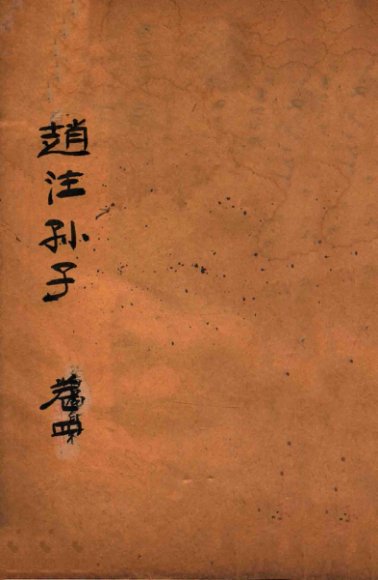 趙注孙子
卷四